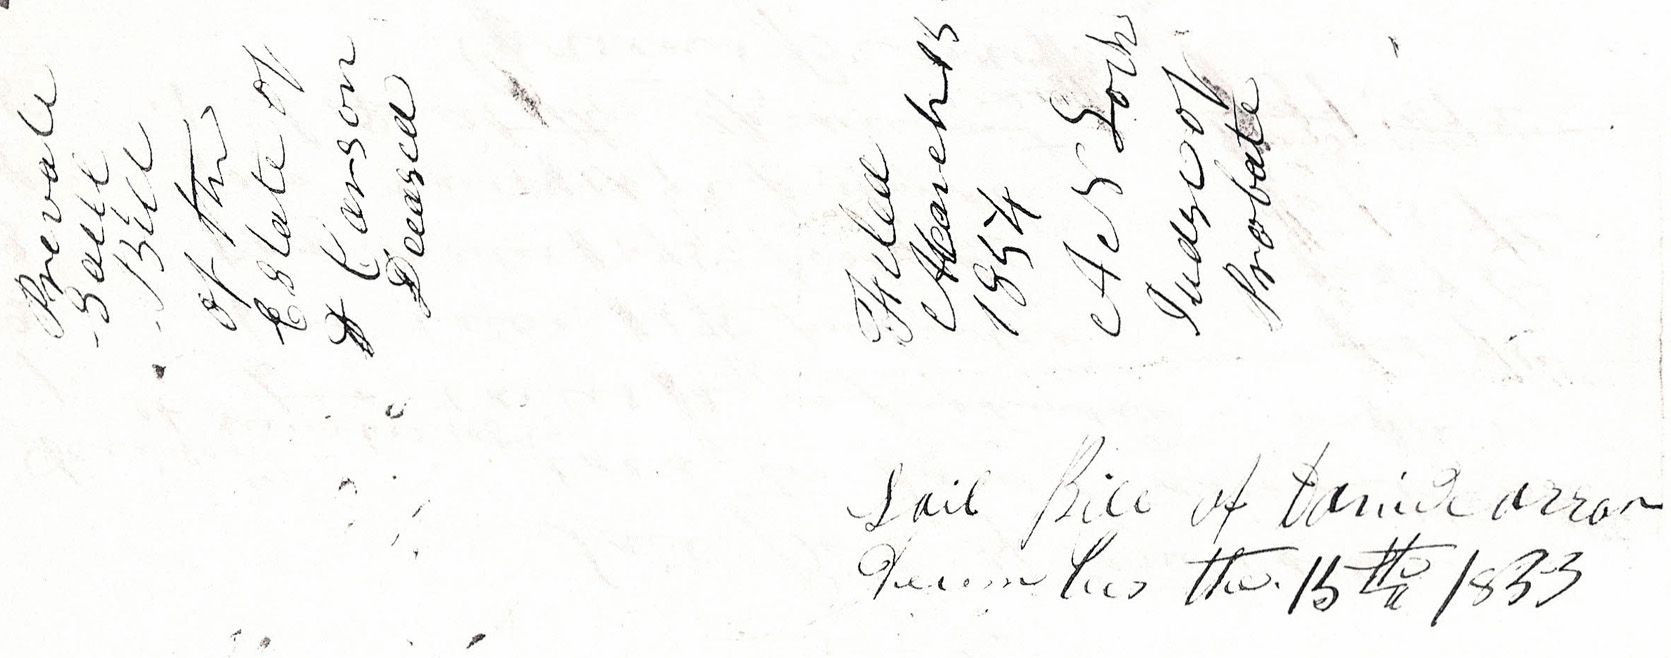 Prevale
Saile
Bill
of the
Estate of
D Carson
Deceased
Filed
March 13
1854
A N
Judge of
Probate
Sail Bill of Daniel Carson
December the 15th 1853